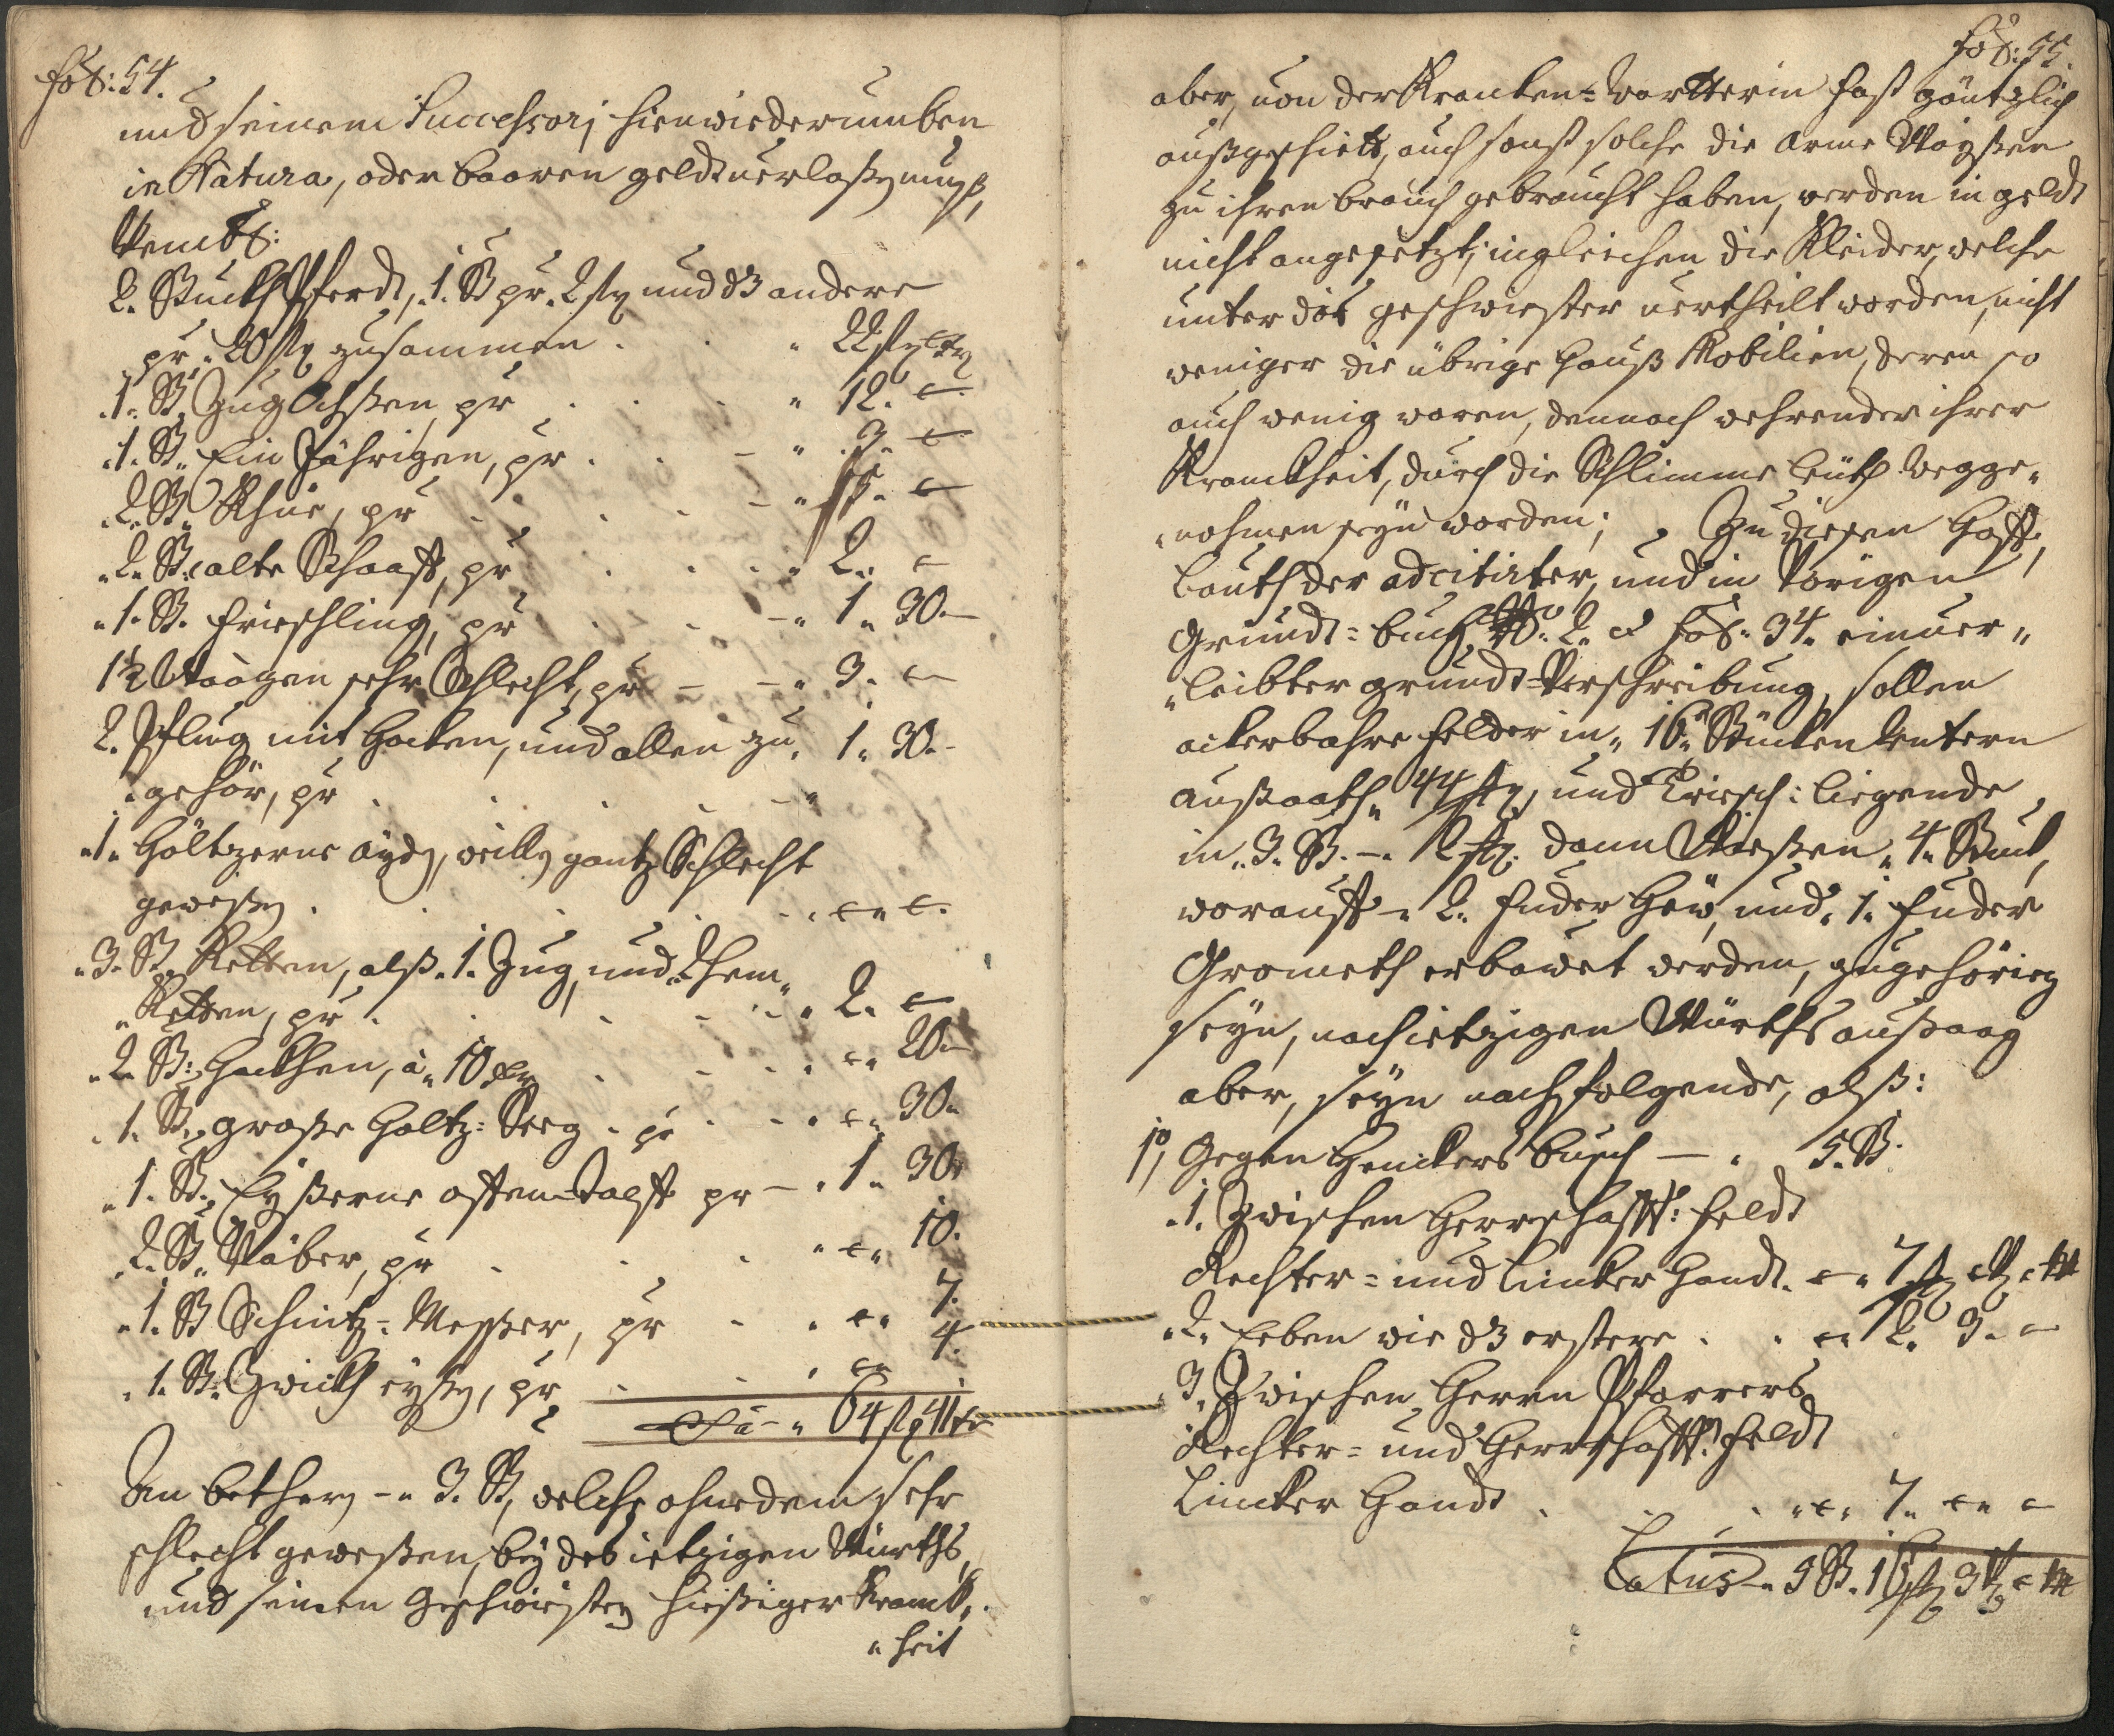 fol: 54.
und seinem Successorj hienwiederumben
in Natura, oder baaren geldt verlaßen muß,
Benentl:
2. Stuckh Pferdt, 1. St pr. 2 fl und dz andere
pr. 20 fl zusammen . . " 22 fl
.1. St. Zug Ochßen, pr . . . " 12. —
.1. St. Ein Jährigen, pr . . — " 3. —
.2. St. Khüe, pr . . . — " 15. —
.2. St. alte Schaaff, pr . . . " 2. —
.1. St. Frieschling, pr . . — " 1 " 30.—
1½ Waagen sehr Schlecht, pr — — " 3. —
2. Pflug mit Hacken, und allen zu„ 1 " 30.—
„gehör, pr . . . — "
.1. Höltzerne äyde, weille gantz Schlecht
geweßen . . . . — " —
.3. St. Ketten, alß .1. Zug, und 2 hem„
„Ketten, pr . . . . " 2. —
.2. St: Hackhen, à 10 xr . . . — " 20—
.1. St. große Holtz: Seeg . pr . . — " 30.
.1. St. Eyßerne offen-Topff pr — . 1 " 30.
.2. St. Näber, pr . . . " — " 10.
.1. St Schnitz-Meßer, pr . . — " 7.
.1. St. Zwickh eyßen, pr . . . — 4.
Sa — " 64 fl 41 kr
An bether — " 3. St, welche ohnedem sehr
schlecht geweßen, bey des ietzigen Würths,
und seinen Geschwiesten hießiger Kranck„
„heit
fol: 55.
aber, von der Krancken-Wartterin fast gäntzlich
außgeschiett, auch sonst solche die arme Wayßen
zu ihren brauch gebraucht haben, werden in geldt
nicht angesetzt, ingleichen die Kleider, welche
unter die geschwiester vertheilt worden, nicht
weniger die übrige Hauß Mobilien, deren so
auch wenig waren, dennoch wehrender ihrer
Kranckheit, durch die Schlimme leüth wegge„
„nohmen seyn worden; Zu diesen Hoff,
lauth der adcitirter, und in Vorigen
Grundt-buch No: 2. et fol: 34. einver„
„leibter grundt-Verschreibung, sollen
ackerbahre felder in 16 Stücken
außaath 44 , und Driesch: liegende
in 3. St. — 12 dann Wießen 4. Stuck,
worauff — 2. Fuder Hew, und 1. Fuder
Grometh erbawet werden, zugehörig
seyn, nach ietzigen Würths außaag
aber, seyn nachfolgende, alß:
1o, Gegen Henckers busch — . 5. St.
.1. Zwischen Herrschafft: feldt
Rechter- und lincker Handt. — " 7
.2. Eeben wie dz erstere . . — " 2. 3. —
.3. Zwischen Herrn Pfarrers
Rechter- und Herrschafft: feldt
Lincker Handt . . . . — " 7. — " —
Latus — 3 St. 16 3